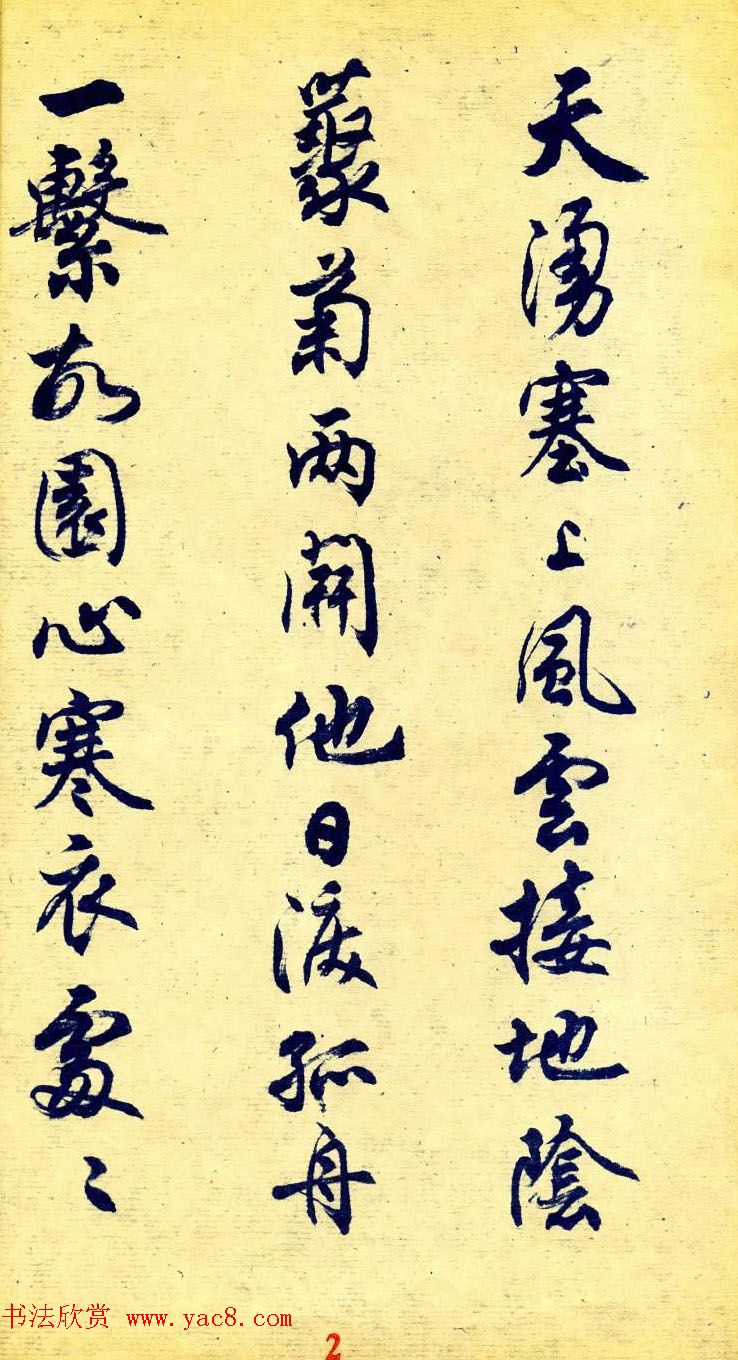 天湧塞上風雲接地陰
藂菊两開他日淚孤舟
一繫故園心寒衣處〻
书法欣赏 www.yac8.com
2